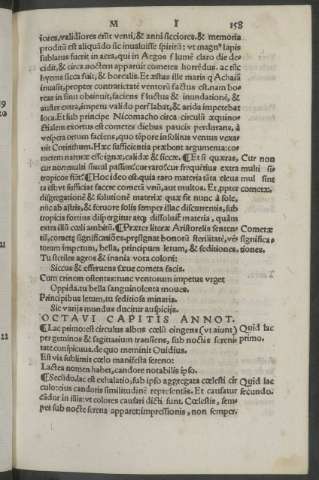 M I 158
iores, validiores erūt venti, & anni sicciores. & memoria
proditū est aliquādo sic inualuisse spiritū: vt magnᵒ lapis
sublatus fuerit in aera, qui in Argos flumē claro die de-
cidit, & circa noctem apparuit cometa horrēdus. ac tūc
hyems sicca fuit, & borealis.
inuasit, propter contrarietatē ventorū factus est. nam bo-
reas in sinu obtinuit, faciens fluctus & inundationē, &
auster extra, impetu valido perflabat, & arida impetebat
loca. Et sub principe Nicomacho circa circulū æquino-
ctialem exortus est cometes diebus paucis perdurans, à
vespera ortum faciens, quo tēpore insolitus ventus vexa-
uit Corinthum. Hæc sufficientia præbent argumenta: co-
metem naturæ esse igneæ, calidæ & siccæ. ¶ Et si quæras, Cur non
cur non multi simul passim exoriātur, cur frequētius extra multi si-
tropicos fiāt? ¶ Hoc ideo est: quia raro materia sita eleua mul sint
ta est: vt sufficiat facere cometā vnū, aut multos. Et, ppter cometæ.
disgregationē & solutionē materiæ quæ fit nunc à sole,
nūc ab astris, & feruore solis semper illac discurrentis, sub
tropicis fortius dispergitur atq; dissoluit materia, quàm
extra illū cœli ambitū. ¶ Præter literæ Aristotelis senten- Cometæ
tiā, cometę significatiōes. prę signat honorū sterilitatē, vēs significa-
torum impetum, bella, principum letum, & seditiones. tiones.
Tu steriles agros & inania vota coloni:
Siccus & effiruens sæuē cometa facis.
Cum crinem ostentas: nunc ventorum impetus vrget
Oppida. tu bella sanguinolenta moues.
Principibus letum, tu seditiosa minaris.
Sic varijs mundus ducitur auspicijs.
OCTAVI CAPITIS ANNOT.
¶ Lac primo: est circulus albus cœlū cingens (vt aiunt) Quid lac
per geminos & sagittarium transiens, sub noctis serenū primo.
tate conspicuus. de quo meminit Ouidius.
Est via sublimis cœlo manifesta sereno:
Lactea nomen habet, candore notabilis ipso.
¶ Secūdo, lac est exhalatio, sub ipso aggregata cœlesti cir Quid lac
culo: eius candoris similitudinē repræsentās. Et causatur secundo.
cādor in illis: vt colores causari dicti sunt. Cœlestis, sem-
per sub nocte serena apparet: impressionis, non semper.